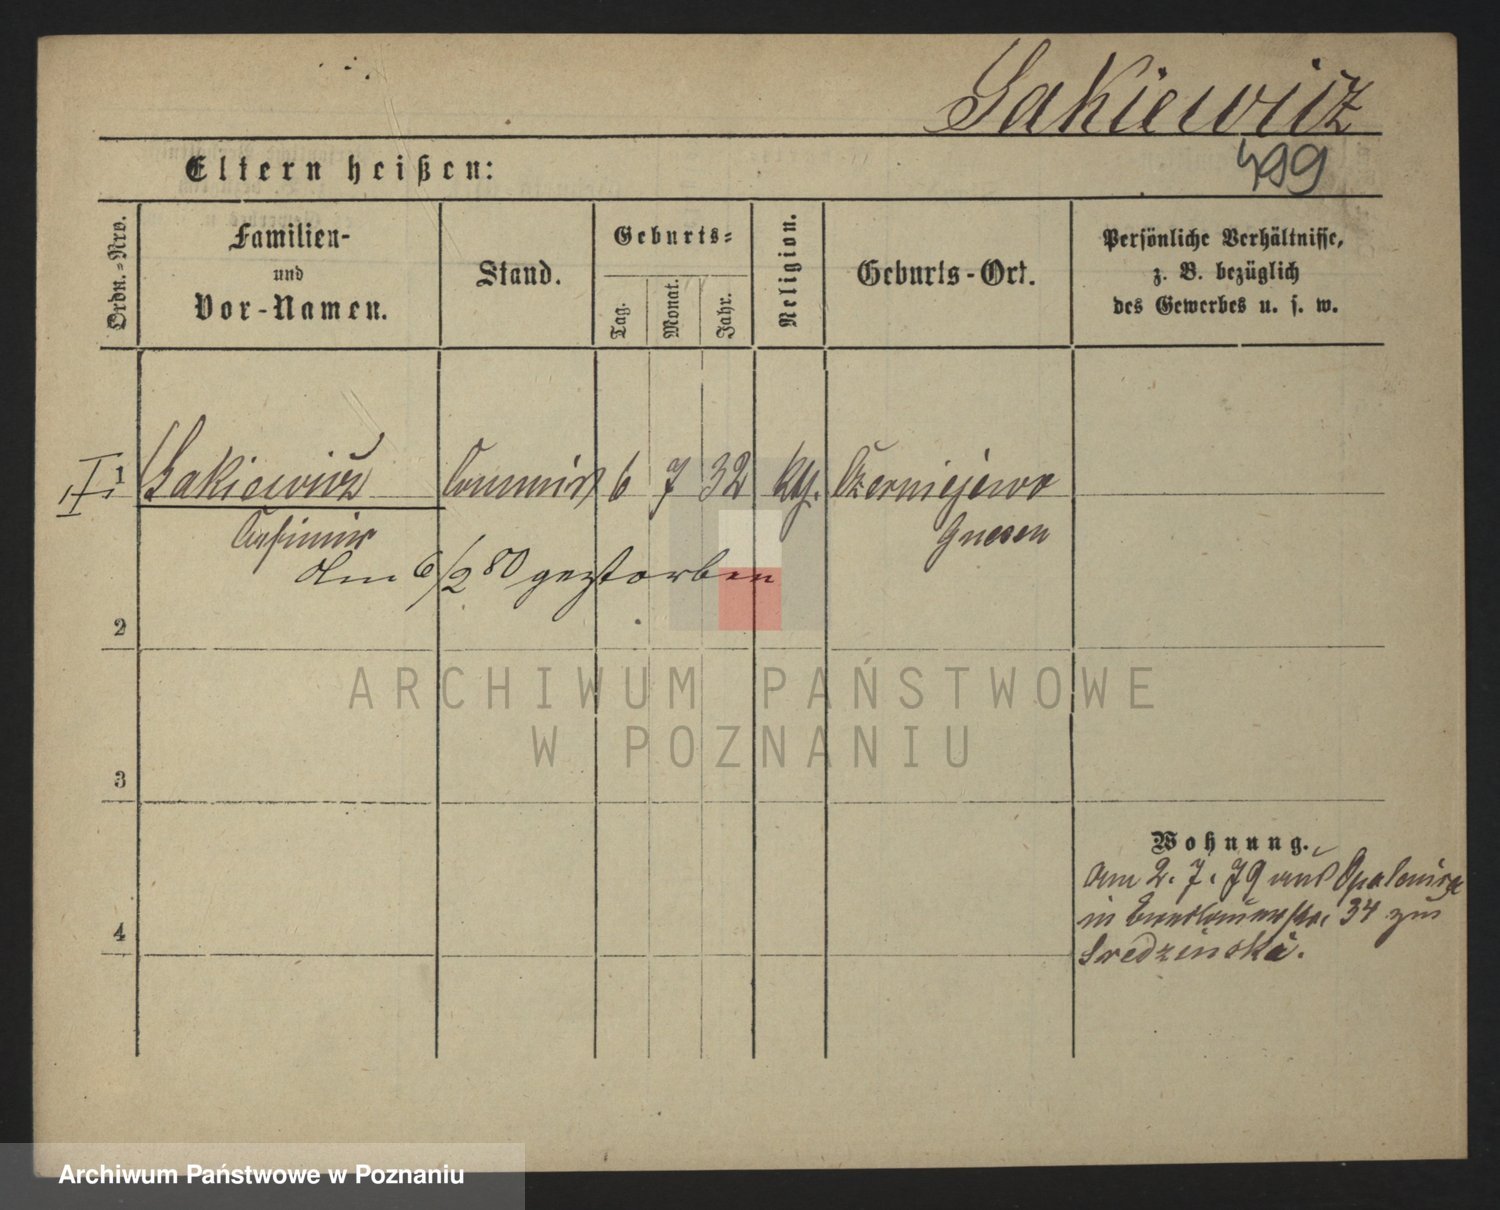 Lakiewicz
499
Eltern heißen:
Ordn.-Nro.
Familien-
und
Vor-Namen.
Stand.
Geburts-
Tag.
Monat.
Jahr.
Religion.
Geburts-Ort.
Persönliche Verhältnisse,
z. B. bezüglich
des Gewerbes u. s. w.
1 Lakiewicz Commis 6 7 32 kth. Czerniejewo
Casimir Gnesen
Am 6/2 80 gestorben
2
3
4
Wohnung.
Am 2. 7. 79 aus Opalenica
in Breslauerstr. 34 zu
Sredzinski.
ARCHIWUM PAŃSTWOWE
W POZNANIU
Archiwum Państwowe w Poznaniu